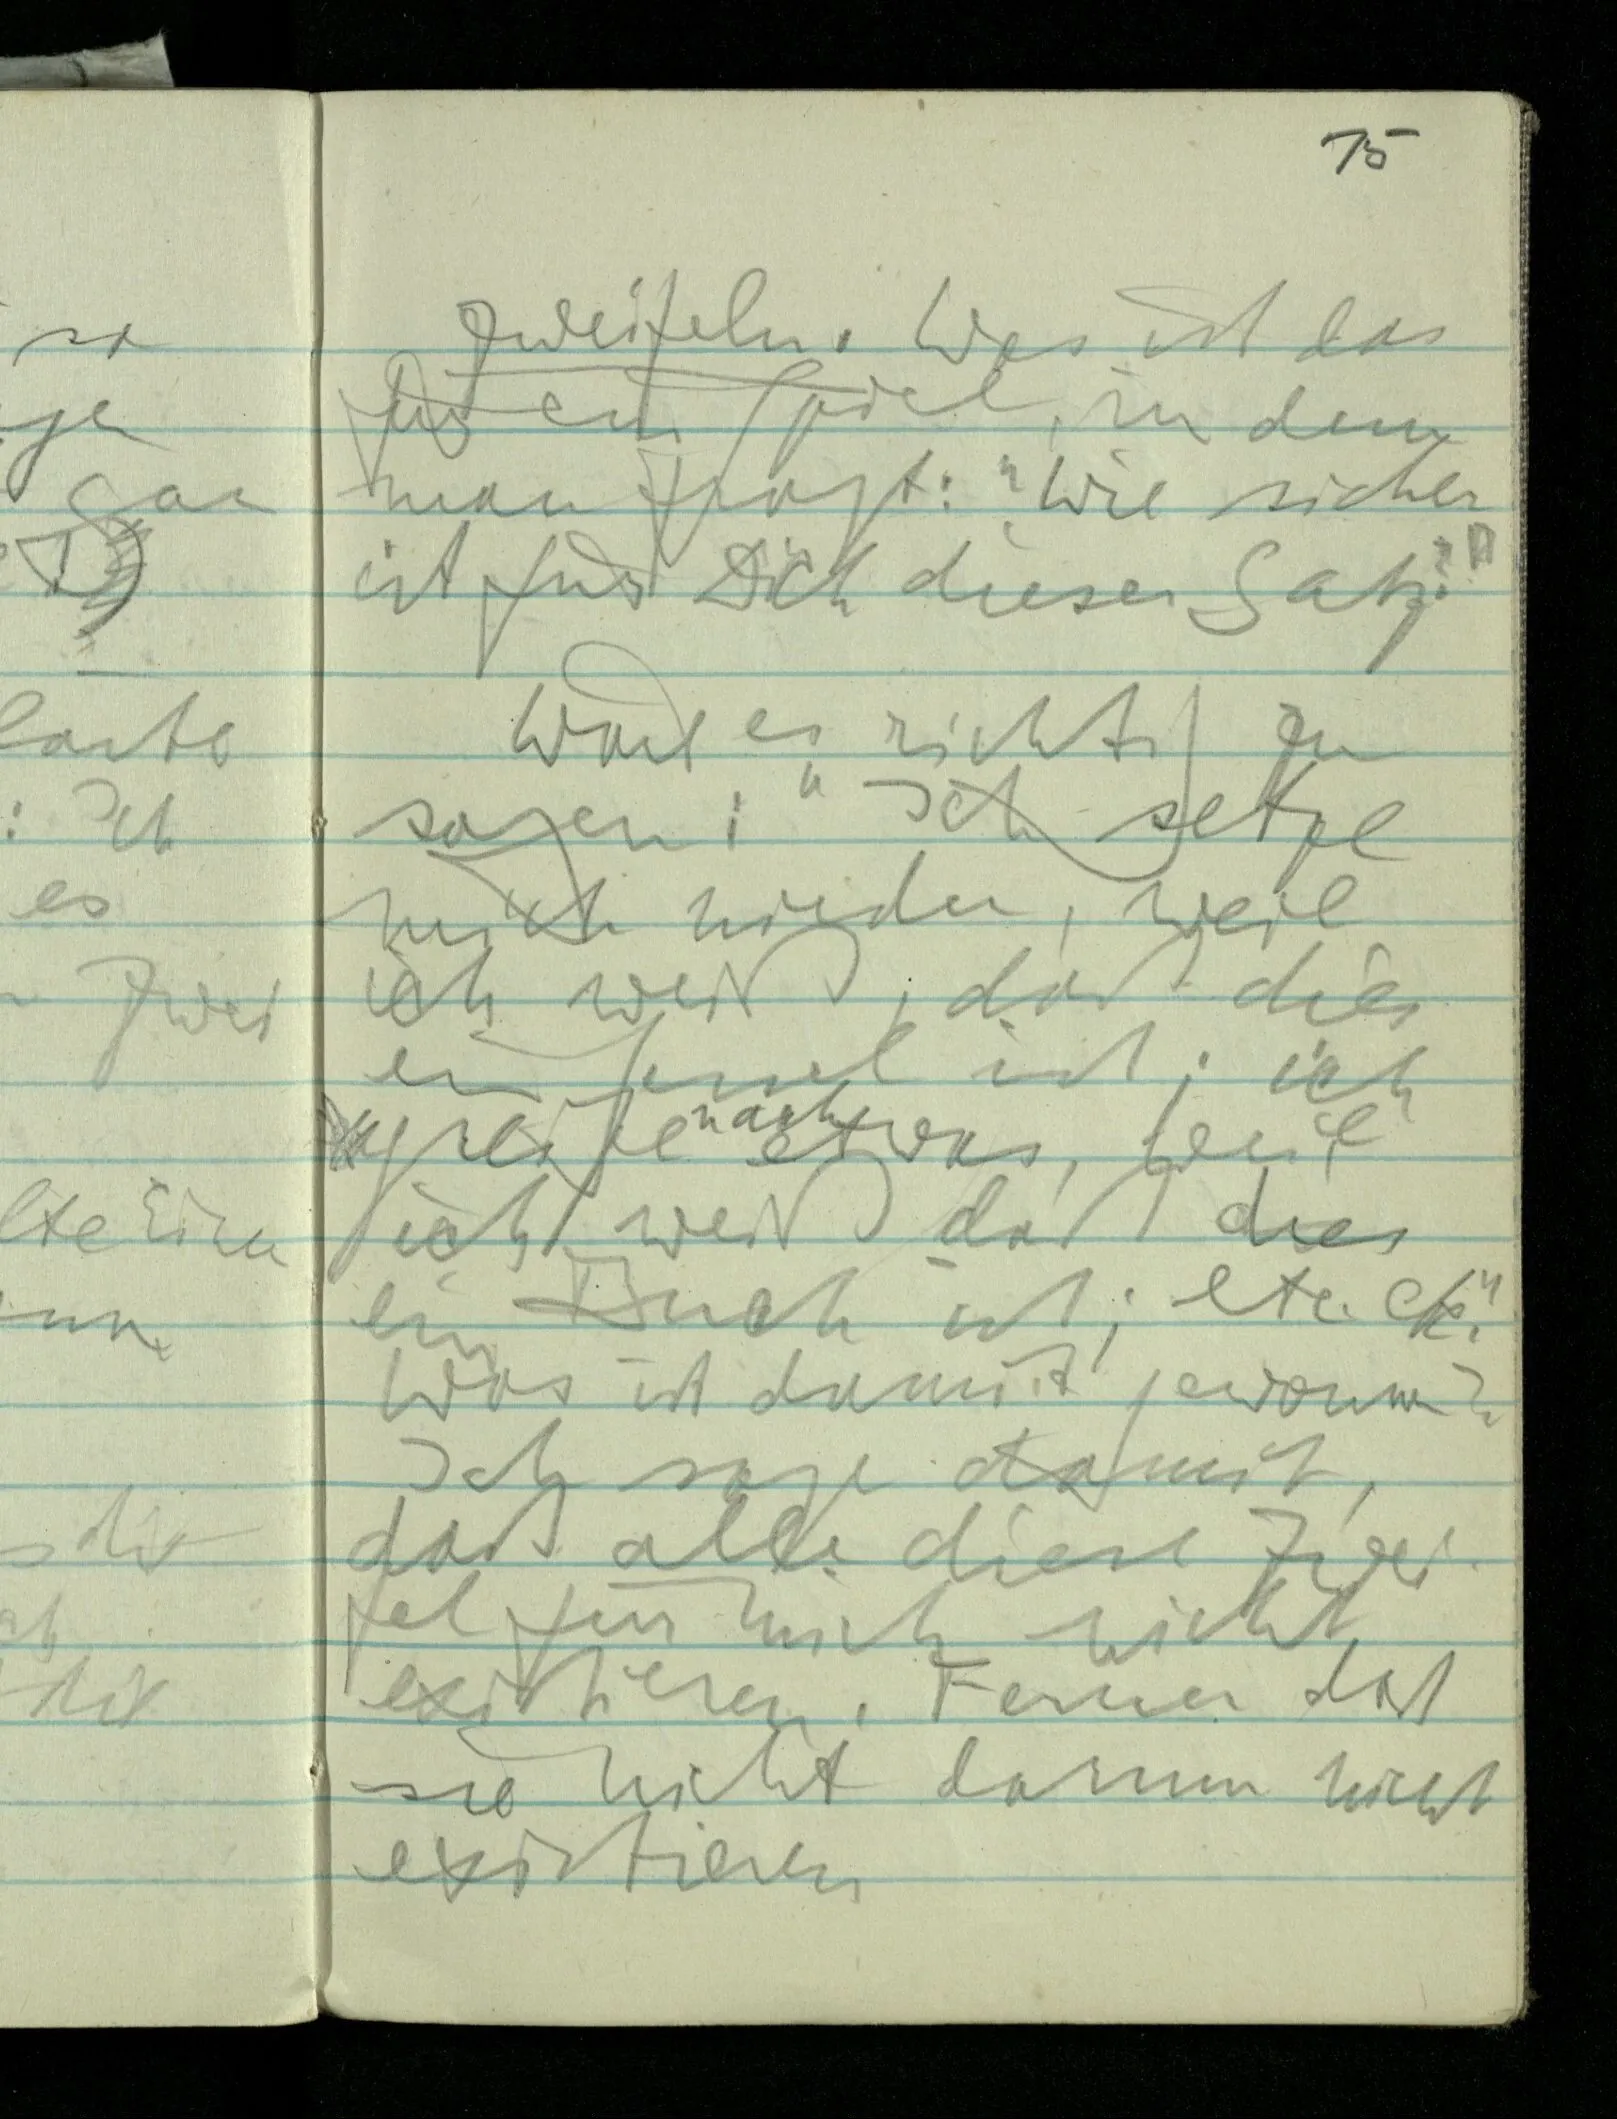 75
so
zweifeln. Was ist das
für ein Spiel, in dem
gar man fragt: "Wie sicher
ist für Dich dieser Satz?"
Wäre es richtig zu
: Ich sagen: "Ich setze
es mich nieder, weil
zwei ich weiß, daß dies
ein Sessel ist; ich
greife nach etwas, weil
ich weiß daß dies
ein Buch ist; etc. etc."
Was ist damit gewonnen?
Ich sage damit,
daß alle diese Zwei-
fel für mich nicht
existieren. Ferner daß
sie nicht darum nicht
existieren